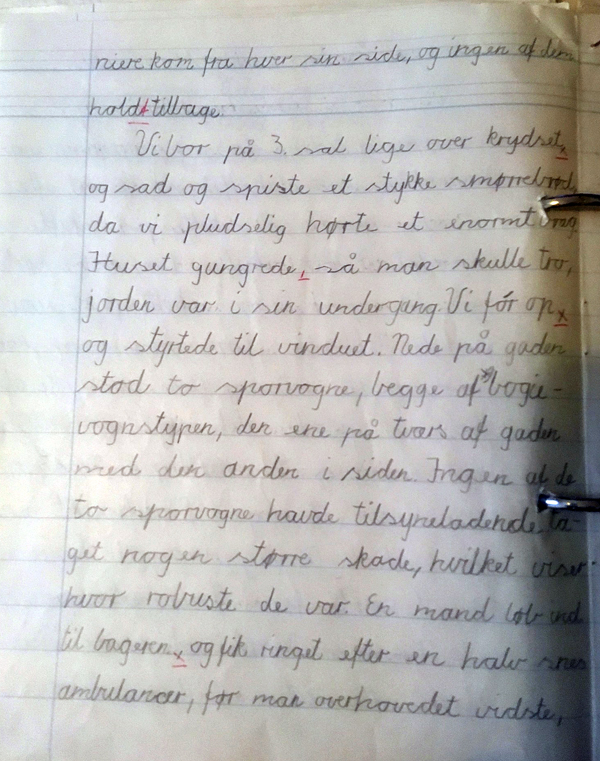 niere kom fra hver sin side, og ingen af dem
holdt tilbage.
Vi bor på 3. sal lige over krydset,
og sad og spiste et stykke smørrebrød,
da vi pludselig hørte et enormt brag.
Huset gungrede, så man skulle tro,
jorden var i sin undergang. Vi fór op,
og styrtede til vinduet. Nede på gaden
stod to sporvogne, begge af bogie-
vognstypen, den ene på tværs af gaden
med den anden i siden. Ingen af de
to sporvogne havde tilsyneladende ta-
get nogen større skade, hvilket viser
hvor robuste de var. En mand løb ind
til bageren, og fik ringet efter en halv snes
ambulancer, før man overhovedet vidste,